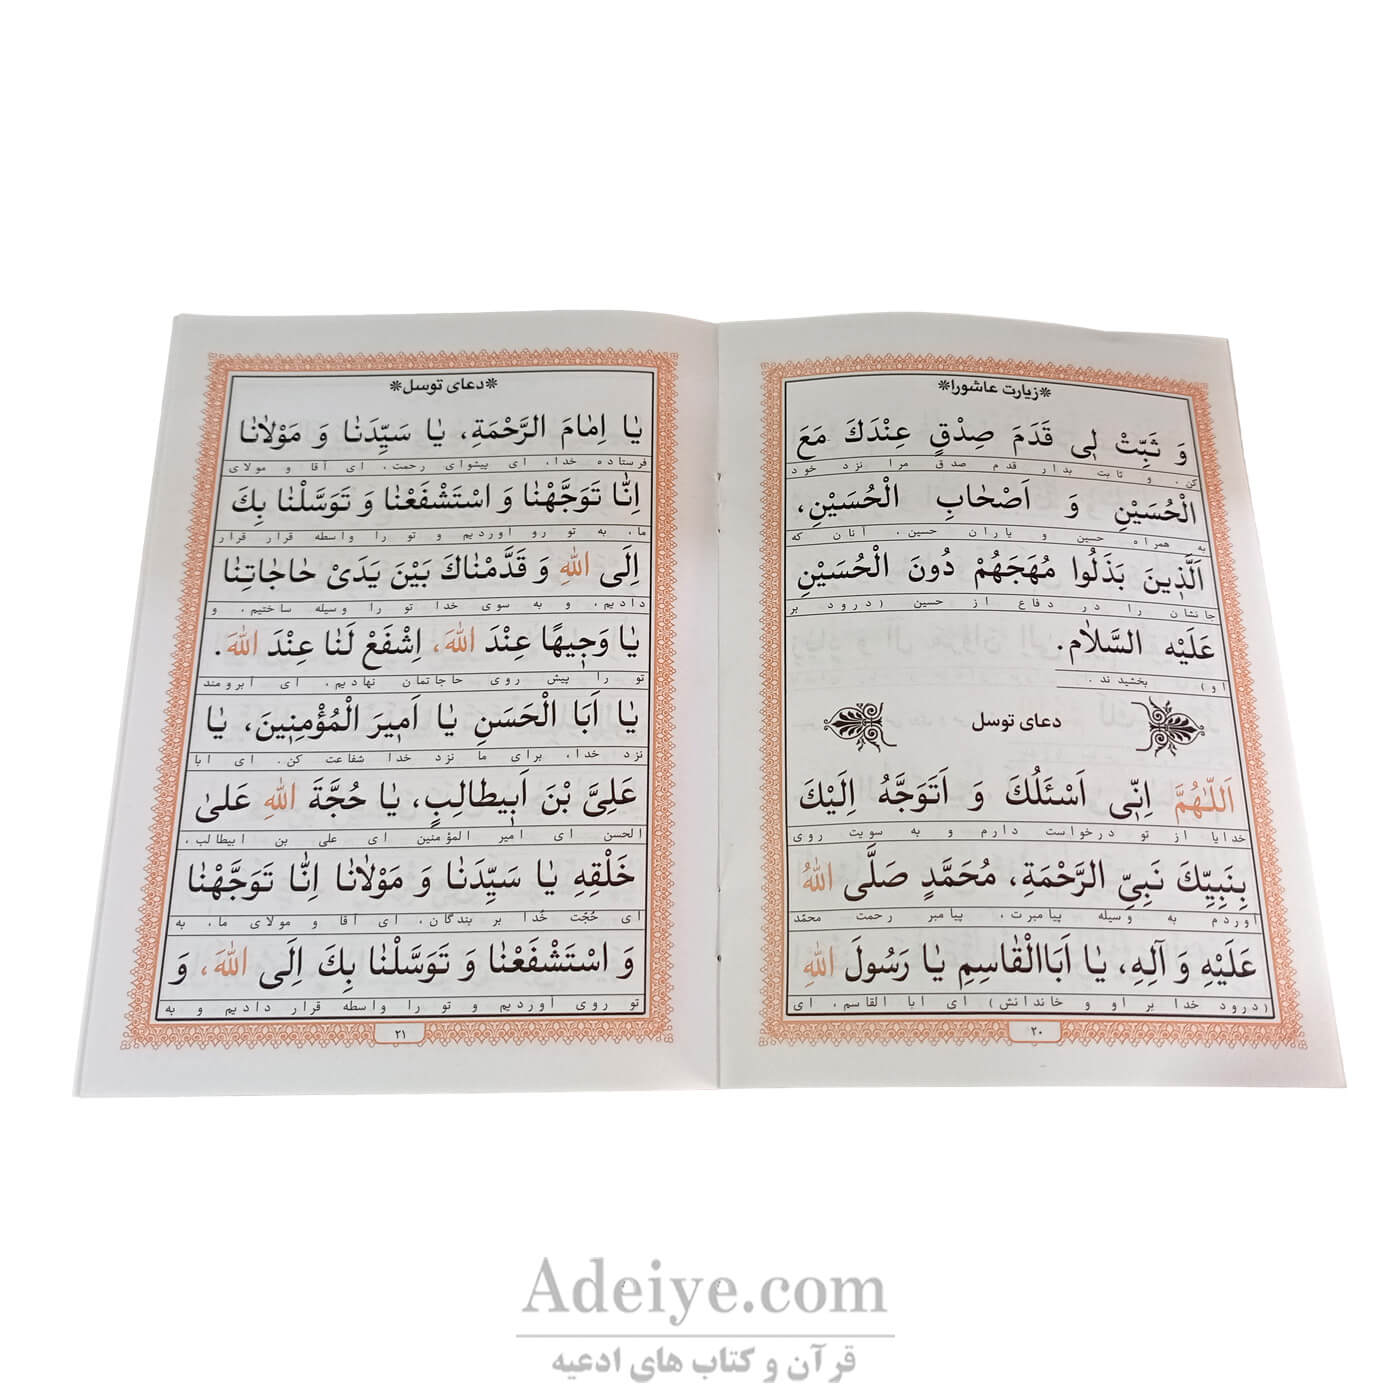 *زیارت عاشورا*
وَ ثَبِّتْ لِی قَدَمَ صِدْقٍ عِنْدَكَ مَعَ
کن. و ثابت بدار قدم صدق مرا نزد خود
الْحُسَیْنِ وَ اَصْحٰابِ الْحُسَیْنِ،
به همراه حسین و یاران حسین. آنان که
اَلَّذِینَ بَذَلُوا مُهَجَهُمْ دُونَ الْحُسَیْنِ
جانشان را در دفاع از حسین (درود بر
عَلَیْهِ السَّلاٰم.
او) بخشیدند.
دعای توسل
اَللّٰهُمَّ اِنِّی اَسْئَلُكَ وَ اَتَوَجَّهُ اِلَیْكَ
خدایا از تو درخواست دارم و به سویت روی
بِنَبِیِّكَ نَبِیِّ الرَّحْمَةِ، مُحَمَّدٍ صَلَّی اللهُ
آوردم به وسیله پیامبرت، پیامبر رحمت محمّد
عَلَیْهِ وَ آلِهِ، یٰا اَبَاالْقٰاسِمِ یٰا رَسُولَ اللهِ
(درود خدا بر او و خاندانش) ای ابا القاسم، ای
۲۰
*دعای توسل*
یٰا اِمٰامَ الرَّحْمَةِ، یٰا سَیِّدَنٰا وَ مَوْلاٰنٰا
فرستاده خدا، ای پیشوای رحمت، ای آقا و مولای
اِنّٰا تَوَجَّهْنٰا وَ اسْتَشْفَعْنٰا وَ تَوَسَّلْنٰا بِكَ
ما، به تو رو آوردیم و تو را واسطه قرار قرار
اِلَی اللهِ وَ قَدَّمْنٰاكَ بَیْنَ یَدَیْ حٰاجٰاتِنٰا
دادیم. و به سوی خدا تو را وسیله ساختیم. و
یٰا وَجِیهًا عِنْدَ اللهَ، اِشْفَعْ لَنٰا عِنْدَ اللهَ.
تو را پیش روی حاجاتمان نهادیم. ای آبرومند
یٰا اَبَا الْحَسَنِ یٰا اَمِیرَ الْمُؤْمِنِینَ، یٰا
نزد خدا، برای ما نزد خدا شفاعت کن. ای ابا
عَلِیَّ بْنَ اَبِیطالِبٍ، یٰا حُجَّةَ اللهِ عَلیٰ
الحسن ای امیر المؤمنین ای علی بن ابیطالب.
خَلْقِهِ یٰا سَیِّدَنٰا وَ مَوْلاٰنٰا اِنّٰا تَوَجَّهْنٰا
ای حُجّت خُدا بر بندگان، ای آقا و مولای ما، به
وَ اسْتَشْفَعْنٰا وَ تَوَسَّلْنٰا بِكَ اِلَی اللهَ، وَ
تو روی آوردیم و تو را واسطه قرار دادیم و به
۲۱
Adeiye.com
قرآن و کتاب های ادعیه